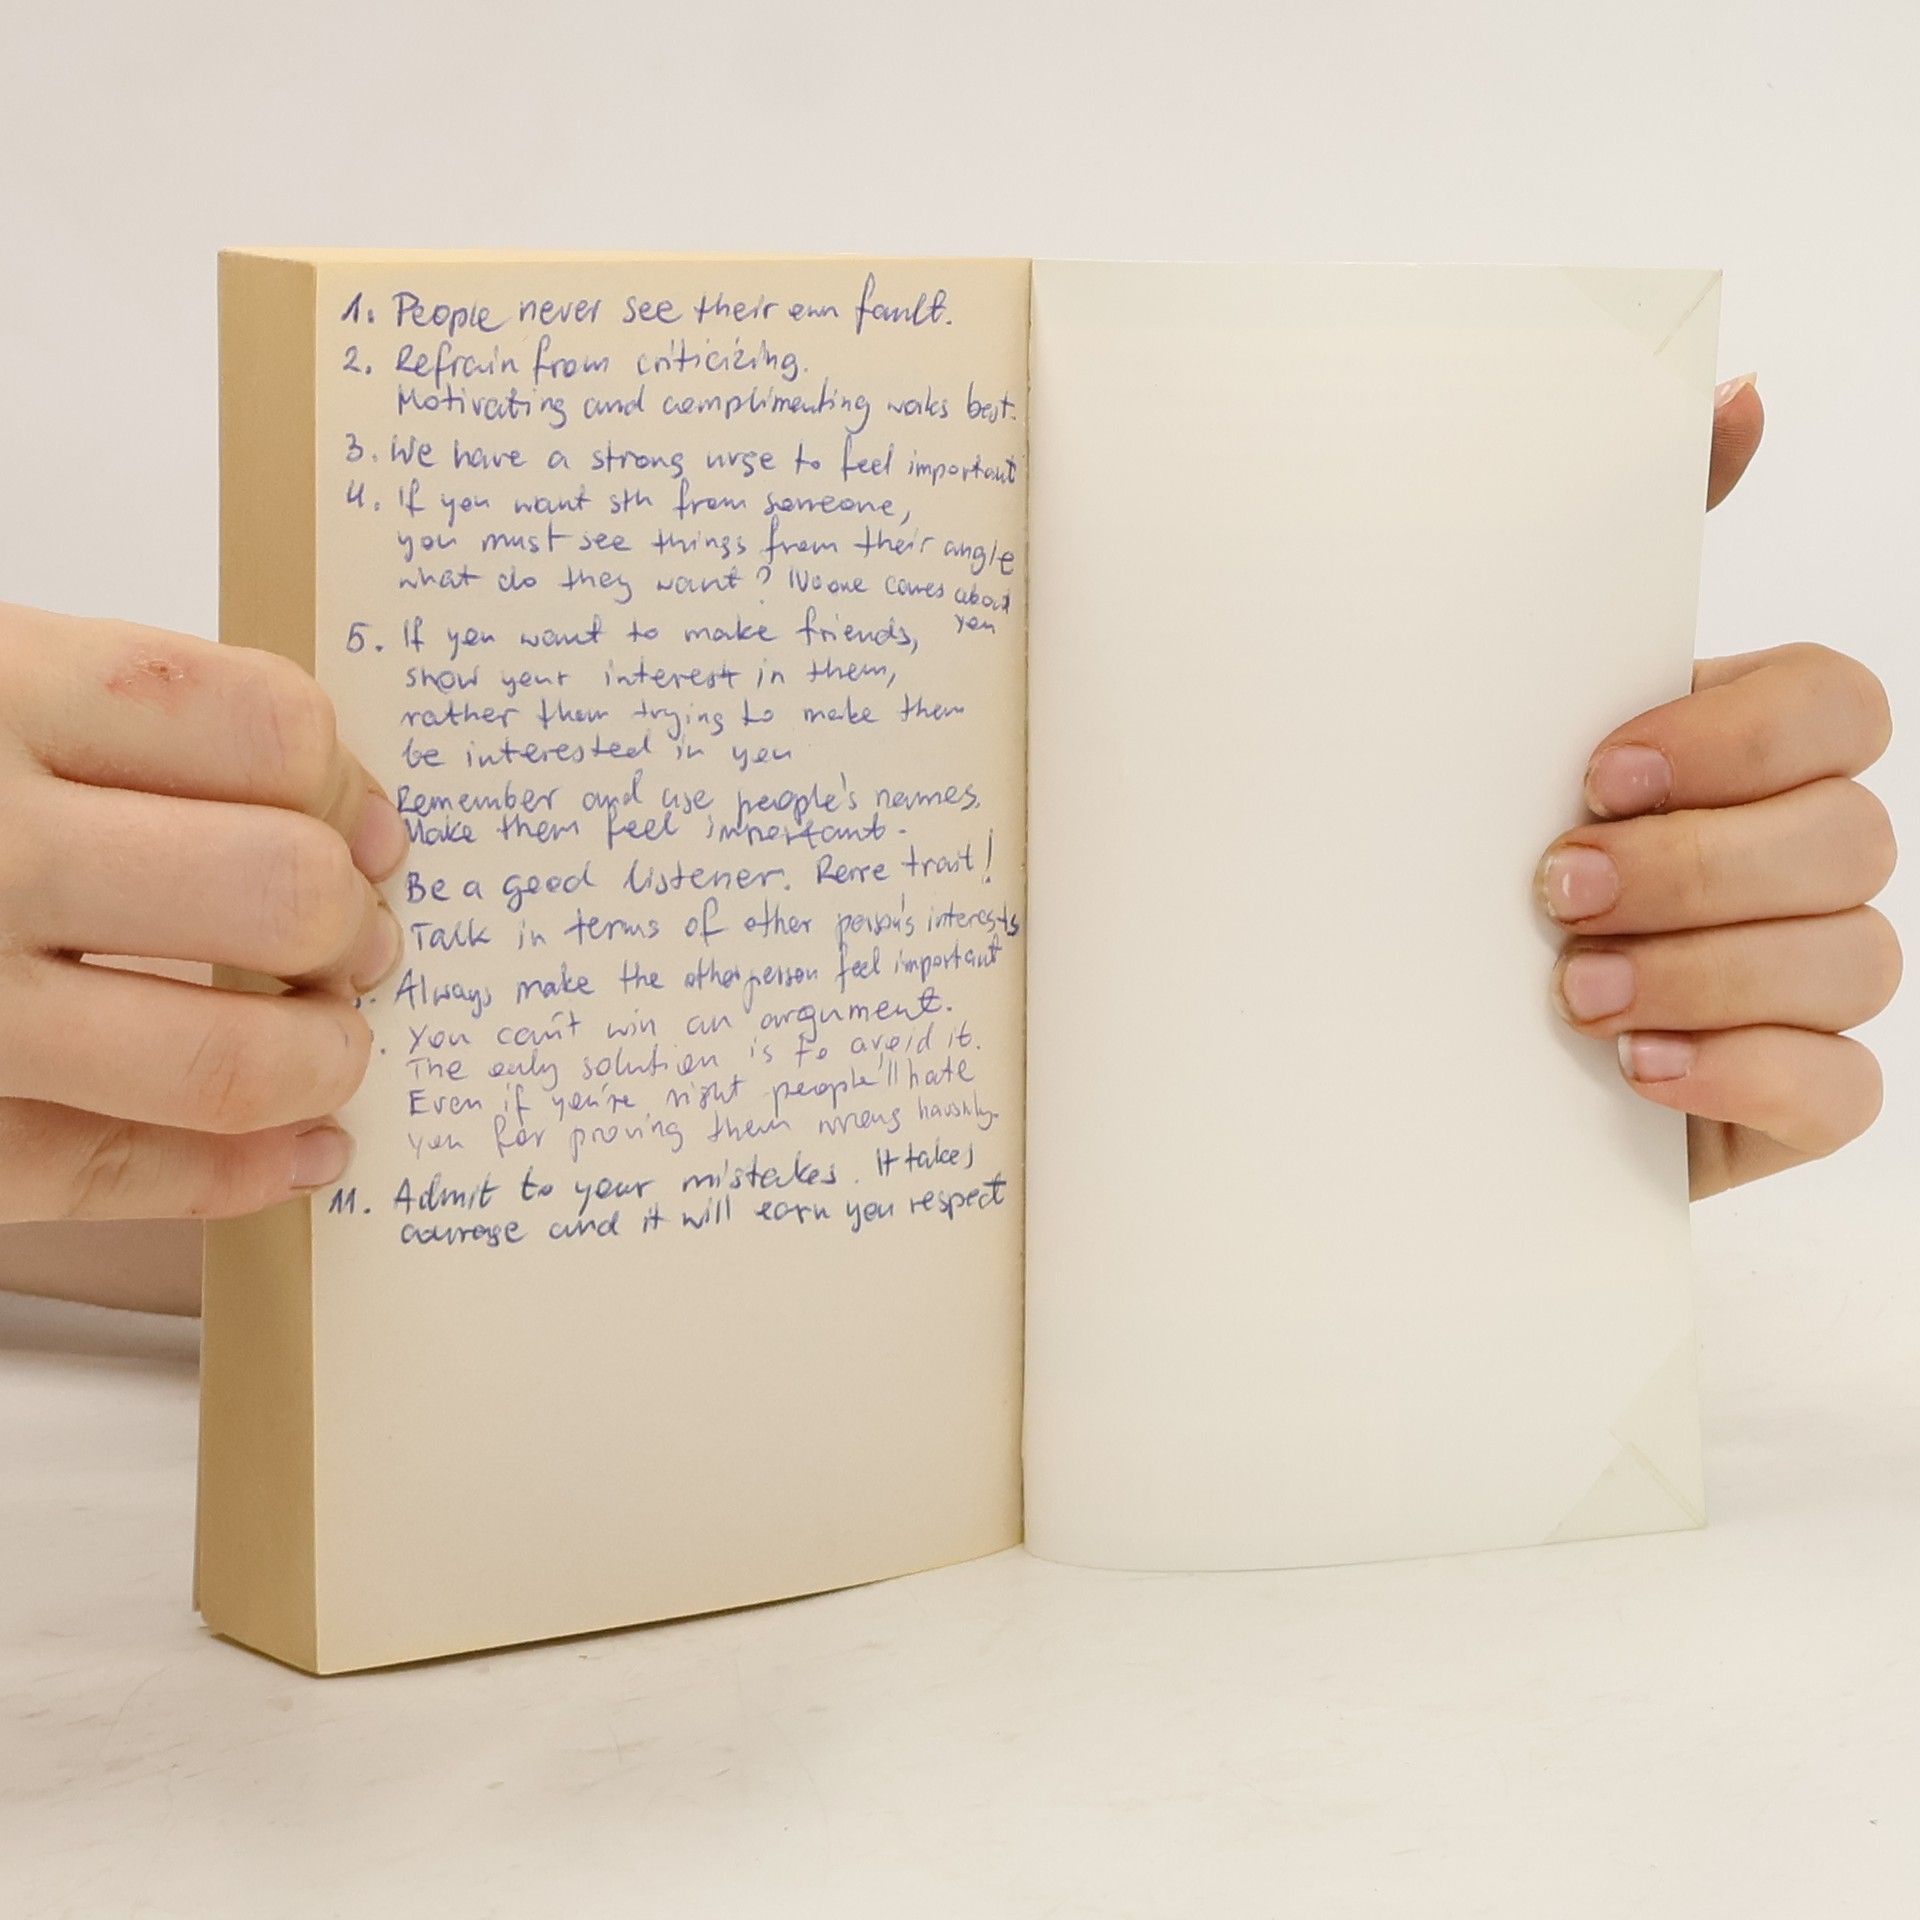 1. People never see their own fault.
2. Refrain from criticizing.
Motivating and complimenting works best.
3. We have a strong urge to feel important
4. If you want sth from someone,
you must see things from their angle
what do they want? No one cares about
you
5. If you want to make friends,
show your interest in them,
rather than trying to make them
be interested in you
Remember and use people's names.
Make them feel important.
Be a good listener. Rare trait!
Talk in terms of other person's interests
Always make the other person feel important
You can't win an argument.
The only solution is to avoid it.
Even if you're right people'll hate
you for proving them wrong
11. Admit to your mistakes. It takes
courage and it will earn you respect